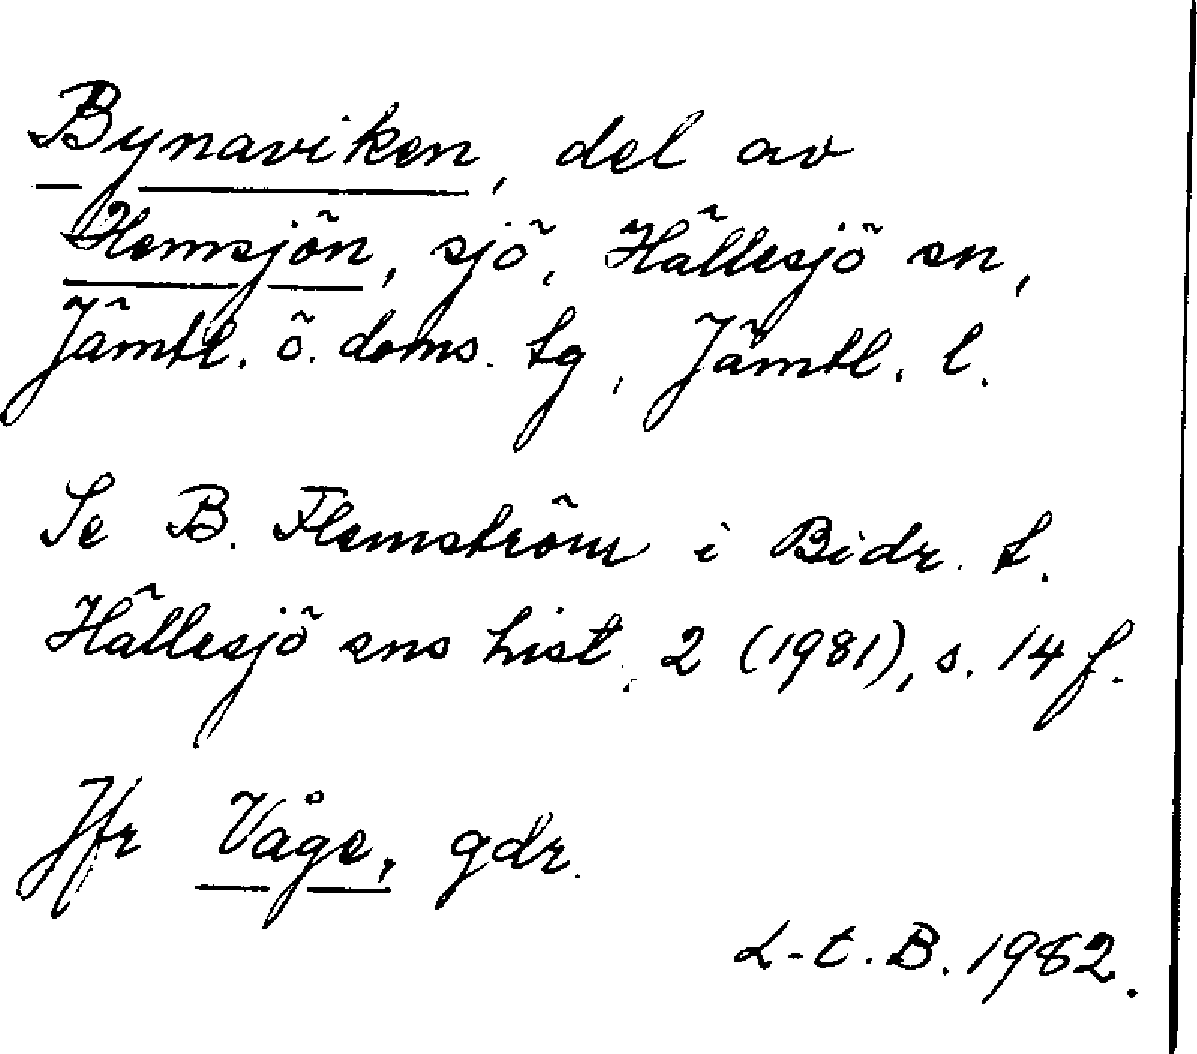 Bynaviken, del av
Hemsjön, sjö, Hällesjö sn,
Jämtl. ö. doms. tg, Jämtl. l.
Se B. Flemström i Bidr. t.
Hällesjö sns hist. 2 (1981), s. 14 f.
Jfr Våge, gdr.
L-t. B. 1982.